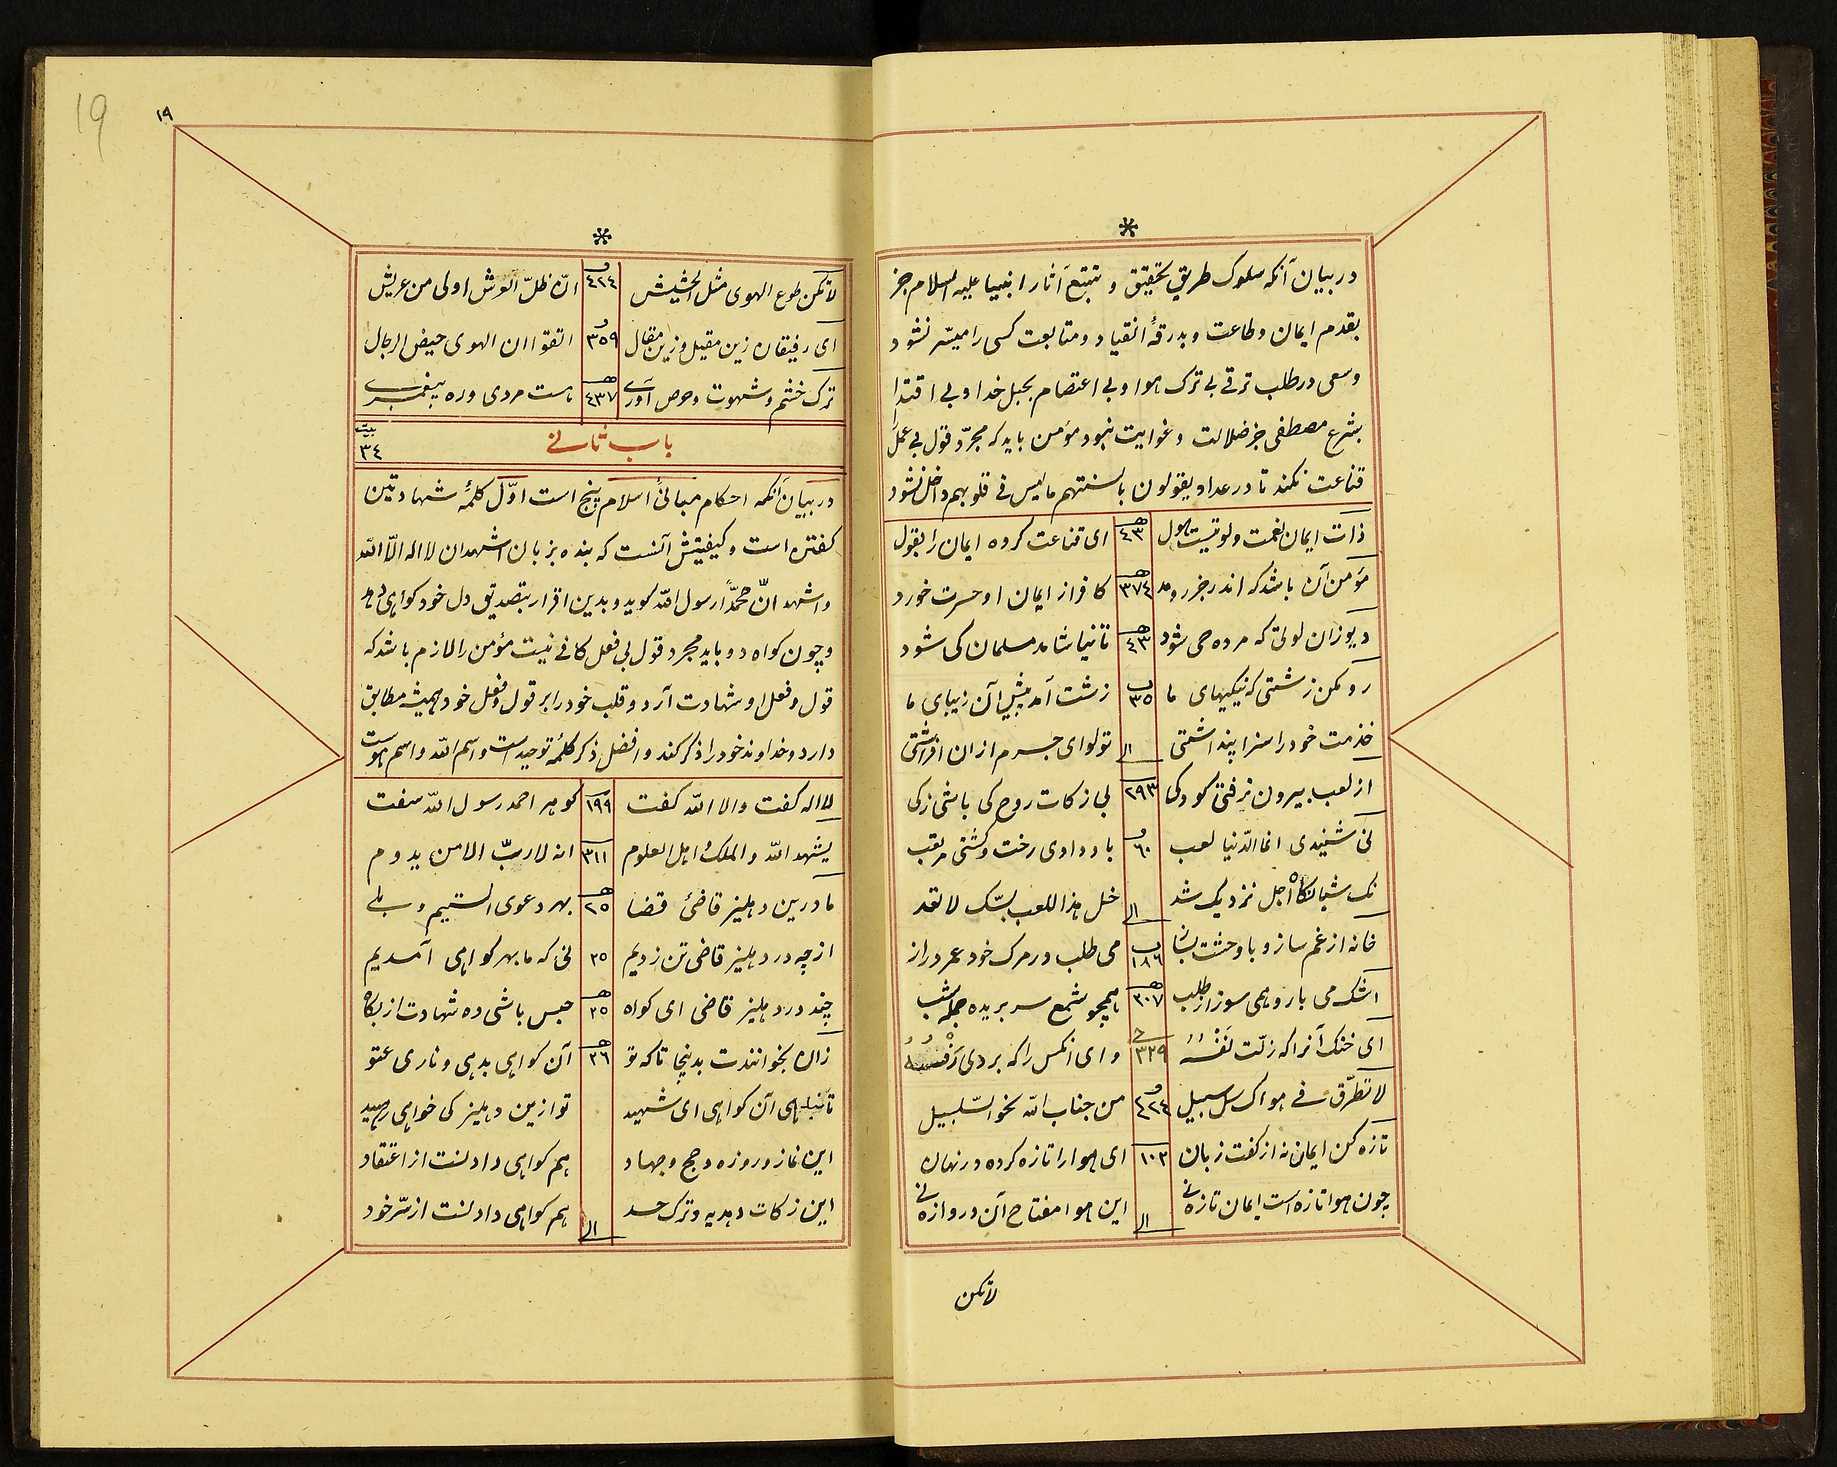 در بیان آنکه سلوک طریق تحقیق و تتبع آثار انبیا علیه السلام جز
بقدم ایمان و طاعت و بدرقهٔ انقیاد و متابعت کسی را میسّر نشود
وسعی در طلب ترقی بی ترک هوا و بی اعتصام بحبل خدا و بی اقتدا
بشرع مصطفی جز ضلالت و غوایت نبود مؤمن باید که مجرّد قول بی عمل
قناعت نکند تا در عداد یقولون بالسنتهم ما لیس فی قلوبهم داخل نشود
ذات ایمان نعمت و لوتیست هول ٤٣ ای قناعت کرده ایمان را بقول
مؤمن آن باشد که اندر جزر و مد ٣٧٤ کافر از ایمان او حسرت خورد
دیو زان لوتی که مرده حی شود ٤٣ تا نیاشامد مسلمان کی شود
رو مکن زشتی که نیکیهای ما ٣٥ زشت آمد پیش آن زیبای ما
خدمت خود را سزا پنداشتی الی تو لوای جرم از ان افراشتی
از لعب بیرون نرفتی کودکی ٢٩٣ بی زکات روح کی باشی زکی
نی شنیدی انما الدّنیا لعب ٦٠ باد دادی رخت و گشتی مرتعب
نک شبانگاه اجل نزدیک شد الی خل هذا اللعب بسّک لا تعد
خانه از غم ساز و با وحشت بساز ١٨٦ می طلب در مرک خود عمر دراز
اشک می بار و همی سوز از طلب ٣٠٧ همچو شمع سر بریده جمله شب
ای خنک آنرا که زلّت نَفْسُهُ ٣٢٩ وای انکس را که بردی رَفْسُهُ
لا تطرّق فی هواک سل سبیل ٤٢٤ من جناب الله نحو السّلسبیل
تازه کن ایمان نه از کفت زبان ١٠٣ ای هوا را تازه کرده در نهان
چون هوا تازه است ایمان تازه نی الی این هوا مفتاح آن دروازه نی
لاتکن
19
١٩
لاتکن طوع الهوی مثل الحشیش ٤٢٤ انّ ظلّ العرش اولی من عریش
ای رفیقان زین مقیل و زین مقال ٣٥٩ اتقوا ان الهوی حیض الرجال
ترک خشم و شهوت و حرص آوری ٤٣٧ هست مردی وره پیغمبری
باب ثانی
بیت ٣٤
در بیان آنکه احکام مبانیٔ اسلام پنج است اوّل کلمهٔ شهادتین
کفتن است و کیفیتش آنست که بنده بزبان اشهد ان لا اله الّا الله
و اشهد انّ محمّداً رسول الله کوید و بدین اقرار بتصدیق دل خود کواهی دهد
و چون کواه دو باید مجرد قول بی فعل کافی نیست مؤمن را لازم باشد که
قول و فعل او شهادت آرد و قلب خود را بر قول و فعل خود همیشه مطابق
دارد و خداوند خود را ذکر کند و افضل ذکر کلمهٔ توحید است و اسم الله و اسم هوست
لا اله کفت و الا الله کفت ١٩٩ کوهر احمد رسول الله سفت
یشهد الله و الملک اهل العلوم ٣١١ انه لا ربّ الا من یدوم
ما درین دهلیز قاضیٔ قضا ٢٥ بهر دعوی الستیم و بلی
از چه در دهلیز قاضی تن زدیم ٢٥ نی که ما بهر کواهی آمدیم
چند در دهلیز قاضی ای کواه ٢٥ حبس باشی ده شهادت از بکاه
زان بخوانندت بدینجا تا که تو ٢٦ آن کواهی بدهی و ناری عتو
تا ندهی آن کواهی ای شهید تو ازین دهلیز کی خواهی رهید
این نماز و روزه و حج و جهاد هم کواهی دادنست از اعتقاد
این زکات و هدیه و ترک حسد الی هم کواهی دادنست از سّر خود